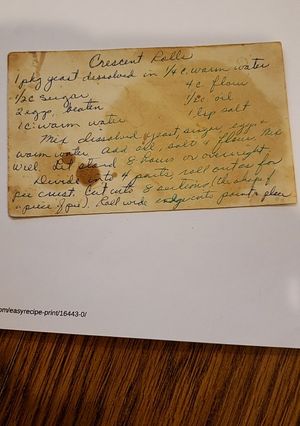 Crescent Rolls
1 pkg yeast dissolved in 1/4 c. warm water
1/2 c sugar 4 c flour
2 eggs, beaten 1/2 c oil
1 c. warm water 1 tsp salt
Mix dissolved yeast, sugar, eggs &
warm water. Add oil, salt & flour. Mix
well. Let stand 8 hours or overnight.
Divide into 4 parts, roll out as for
pie crust. Cut into 8 sections (the shape of
a piece of pie). Roll wide edge into point & place
om/easyrecipe-print/16443-0/